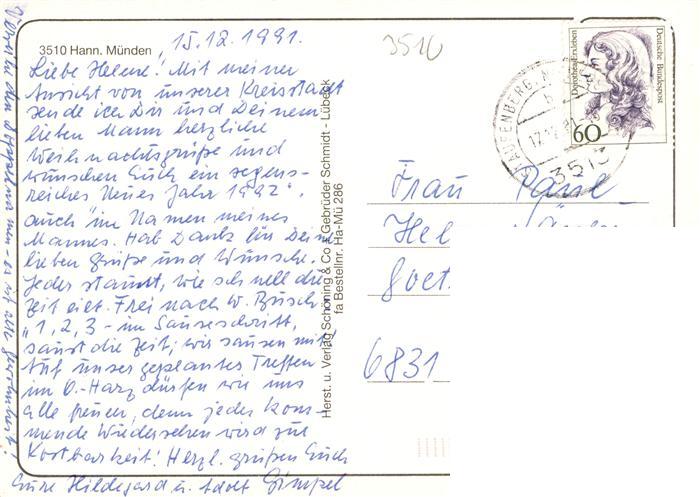 3510 Hann. Münden
15.12.1991.
Liebe Helene! Mit meiner
Ansicht von unserer Kreisstadt
sende ich Dir und Deinem
lieben Mann herzliche
Weihnachtsgrüße und
wünschen Euch ein segens-
reiches Neues Jahr 1992.
auch im Namen meines
Mannes. Hab Dank für Deine
lieben Grüße und Wünsche.
Jeder staunt, wie schnell die
Zeit eilt. Frei nach W. Busch:
"1, 2, 3 - im Sauseschritt,
saust die Zeit; wir sausen mit"
Auf unser geplantes Treffen
im O.-Harz dürfen wir uns
alle freuen, denn jedes kom-
mende Wiedersehen wird zur
Kostbarkeit! Herzl. grüßen Euch
Eure Hildegard u. Adolf Gimpel
Herst. u. Verlag Schöning & Co + Gebrüder Schmidt - Lübeck
fa Bestellnr. Ha-Mü 286
3510
STAUFENBERG
b
17.12.91
3513
Dorothea Erxleben
Deutsche Bundespost
60
Frau
Hel
Goet
6831